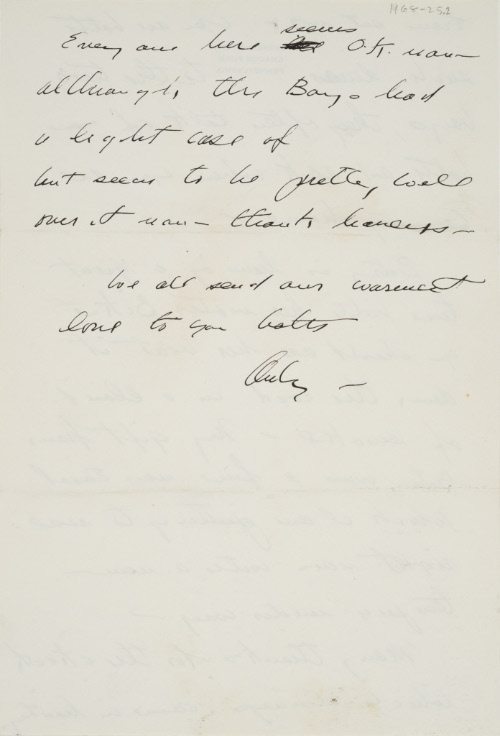 HG8-252
Every one here seems O.K. now
although the Boys had
a light case of
but seem to be pretty well
over it now - thanks heavens -
We all send our warmest
love to you both